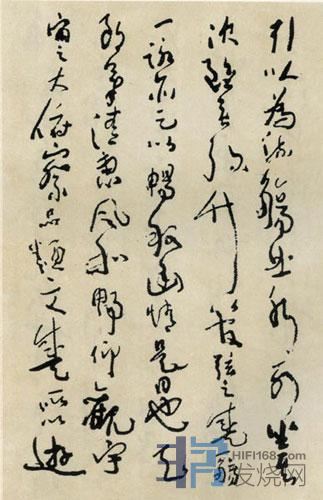 引以為流觴曲水列坐其
次雖無絲竹管弦之盛觴
一詠亦足以暢敘幽情是日也天
朗氣清惠風和暢仰觀宇
宙之大俯察品類之盛所以遊
HIFI168.com
发烧网